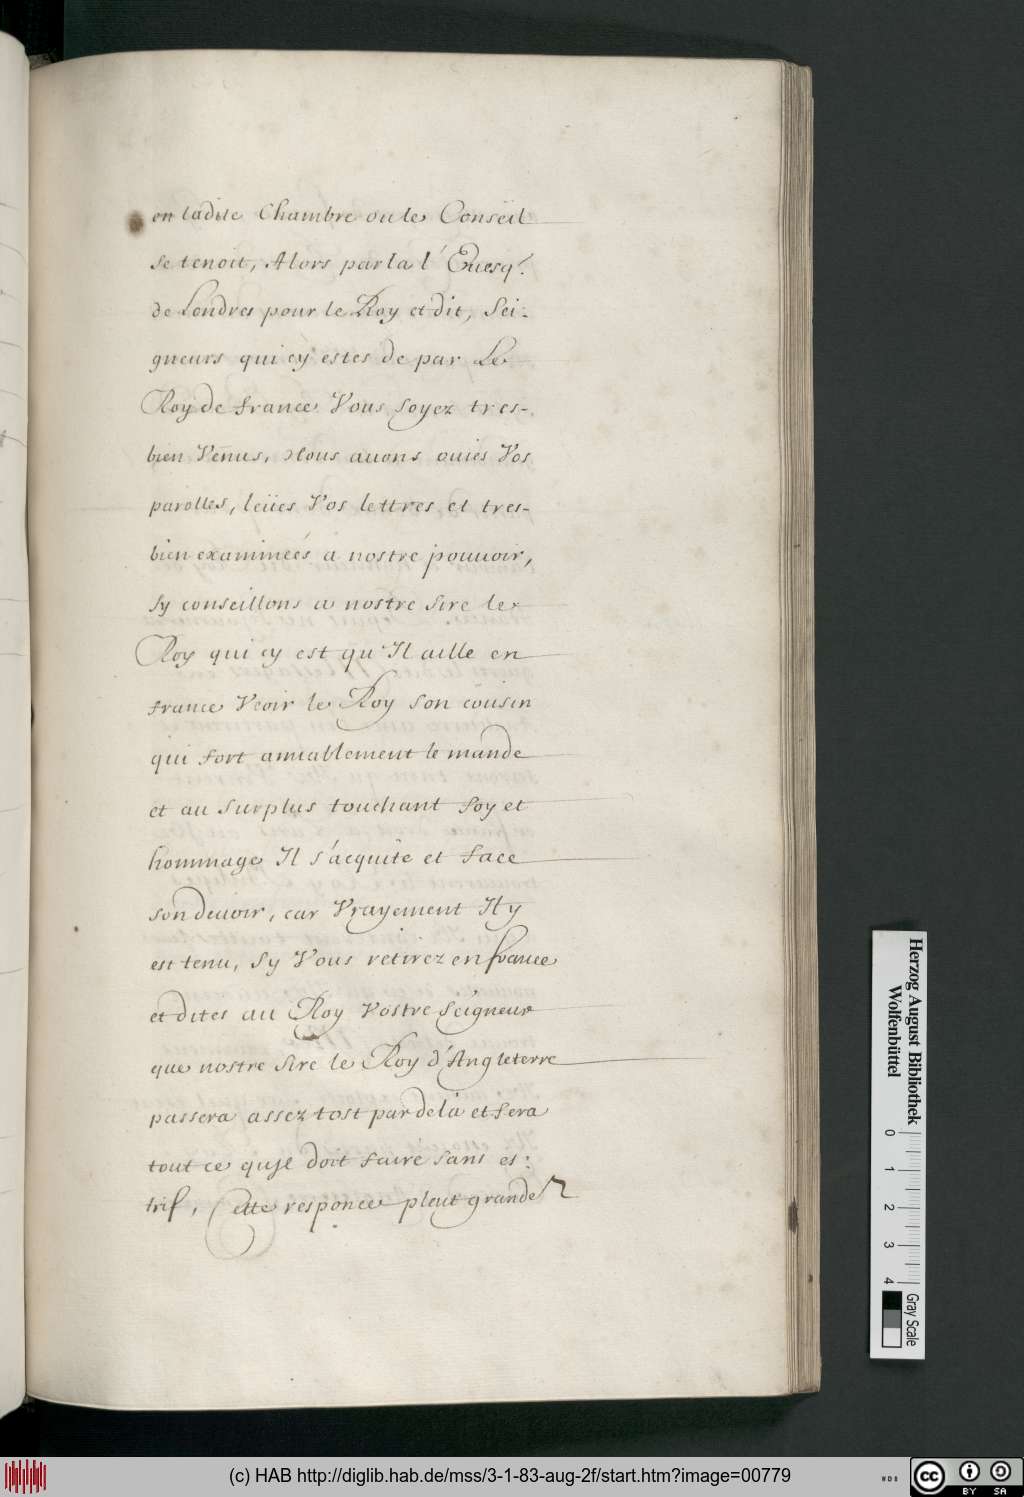 en ladite Chambre ou le Conseil
se tenoit, Alors parla l'Euesq.
de Londres pour le Roy et dit, Sei-
gneurs qui cy estes de par Le
Roy de france Vous soyez tres-
bien Venus, Nous auons ouies Vos
parolles, leües Vos lettres et tres-
bien examineés a nostre pouuoir,
sy conseillons a nostre Sire le
Roy qui cy est qu'Il aille en
france Veoir le Roy son cousin
qui fort amiablement le mande
et au surplus touchant foy et
hommage Il s'acquite et face
son deuoir, car Vrayement Il y
est tenu, Sy Vous retirez en france
et dites au Roy Vostre Seigneur
que nostre Sire le Roy d'Angleterre
passera assez tost par dela et fera
tout ce qu'Il doit faire sans es-
trif, Cette responce pleut grandem
Herzog August Bibliothek
Wolfenbüttel
0 1 2 3 4
Gray Scale
(c) HAB http://diglib.hab.de/mss/3-1-83-aug-2f/start.htm?image=00779
WDB
cc BY SA